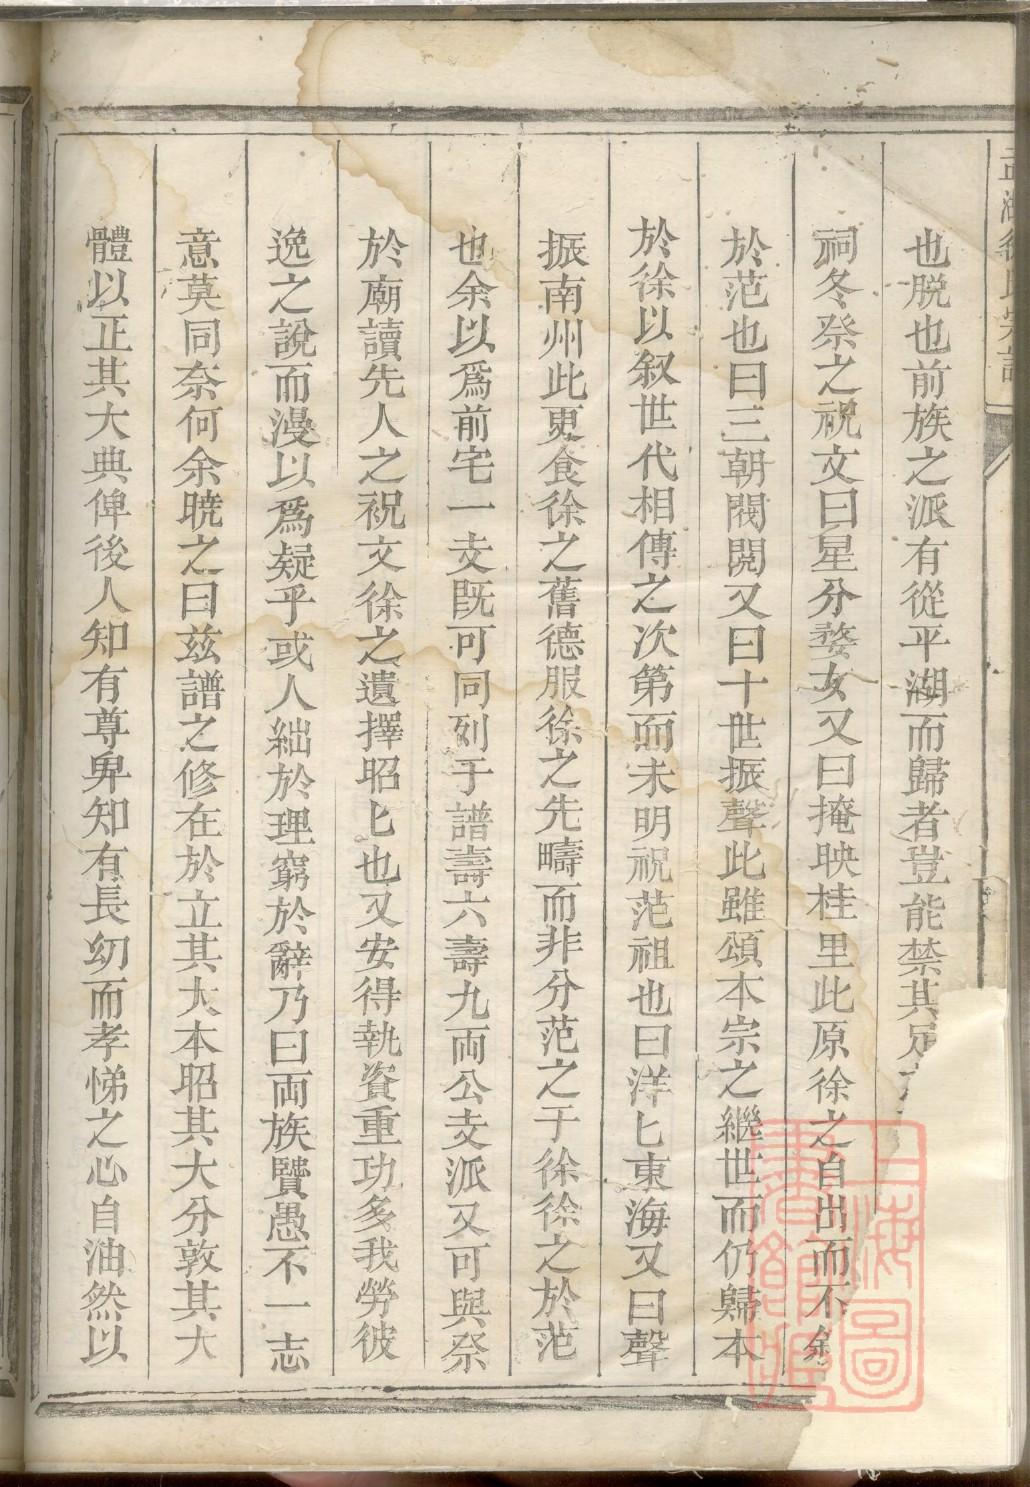 也脱也前族之派有從平湖而歸者豈能禁其足
祠冬祭之祝文曰星分婺女又曰掩映桂里此原徐之自出而不
於范也曰三朝閥閱又曰十世振聲此雖頌本宗之繼世而仍歸本
於徐以叙世代相傳之次第而未明祝范祖也曰洋匕東海又曰聲
振南州此更食徐之舊德服徐之先疇而非分范之于徐徐之於范
也余以爲前宅一支既可同列于譜壽六壽九兩公支派又可與祭
於廟讀先人之祝文徐之遺擇昭匕也又安得執資重功多我勞彼
逸之說而漫以爲疑乎或人絀於理窮於辭乃曰両族賢愚不一志
意莫同奈何余曉之曰玆譜之修在於立其大本昭其大分敦其大
體以正其大典俾後人知有尊卑知有長幼而孝悌之心自油然以
上海圖書館藏